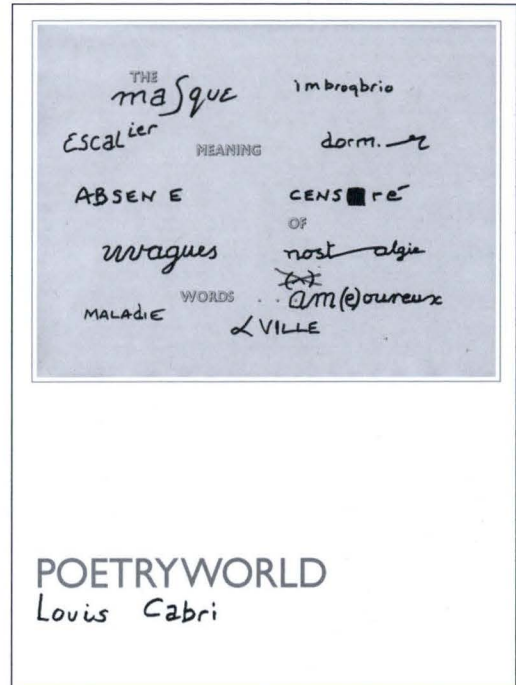 THE
maSque imbroqbrio
Escalier
MEANING dorm. r
ABSEN E CENS■ré
OF
vvvagues nost algie
(x)
WORDS . . am(e)oureux
MALAdiE
α VILLE
POETRYWORLD
Louis Cabri